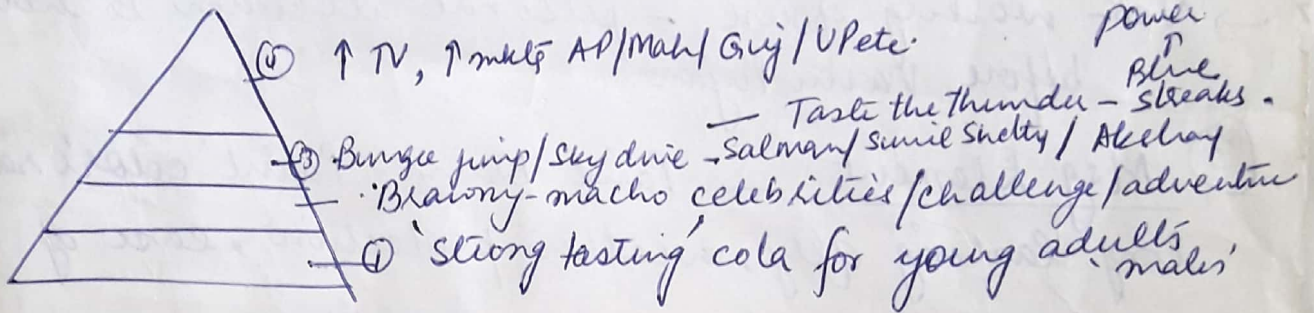 ④ ↑ TV, ↑ mkts AP/Mah/Guj/UP etc.
power
↑
Blue
— Taste the thunder – streaks.
③ Bungee jump/Sky dive – Salman/Sunil Shetty/Akshay
— · Brawny-macho celebrities/challenge/adventure
① 'strong tasting' cola for young adults,
'males'